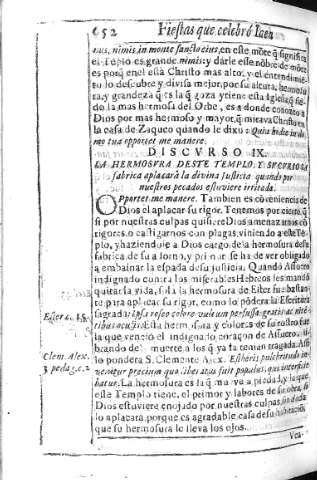 652 Fiestas que celebró Iaen
tus, nimis, in monte sancto eius, en este mõte q̃ significa
el Tēplo es grande nimis: y darle este nõbre de mõte
es porq̃ en el està Christo mas alto, y el entendimiē
to lo descubre y divisa mejor, por su altura, hermosu
ra, y grandeza q̃ es la q̃ goza y tiene esta Iglesia, siē
do la mas hermosa del Orbe, es a donde conozco a
Dios por mas hermoso y mayor, q̃ mirava Christo en
la casa de Zaqueo quando le dixo: Quia hodie in do
mo tua oportet me manere.
DISCVRSO IX.
LA HERMOSVRA DESTE TEMPLO, Y SV
fabrica aplacarà la divina Iusticia quando por
nuestros pecados estuviere irritada.
OPportet me manere. Tambien es cõveniencia de
Dios el aplacar su rigor. Tenemos por cierto, q̃
si por nuestras culpas quisiere Dios amenazarnos cõ
rigores, o castigarnos con plagas, viniendo a este Tē-
plo, y haziendole a Dios cargo de la hermosura desta
fabrica, de su adorno, y primor se ha de ver obligado
a embainar la espada de su justicia. Quando Assuero
indignado contra los miserables Hebreos les mandò
quitar la vida, sola la hermosura de Ester fue bastan-
te para aplacar su rigor, como lo põdera la Escritura
Ester c. 15. sagrada: Ipsa roseo colore vultum perfusa, gratis ac niti-
tibus oculis. Esta hermosura y colores de su rostro fue
la que venciò el indignado coraçon de Assuero, li-
brando de muerte a los q̃ ya la tenian tragada. Assi
Clem. Alex. lo pondera S. Clemente Alex. Estheris pulchritudo in-
3. pedag. c. 2 venitur precium quo liberatus fuit populus, qui interfice
batur. La hermosura es la q̃ mueve a piedad, y la que
este Templo tiene, el primor y labores de su obra, si
Dios estuviere enojado por nuestras culpas, sin duda
lo aplacarà, porque es agradable casa de su habitaciõ,
que su hermosura le lleva los ojos.
Vea-